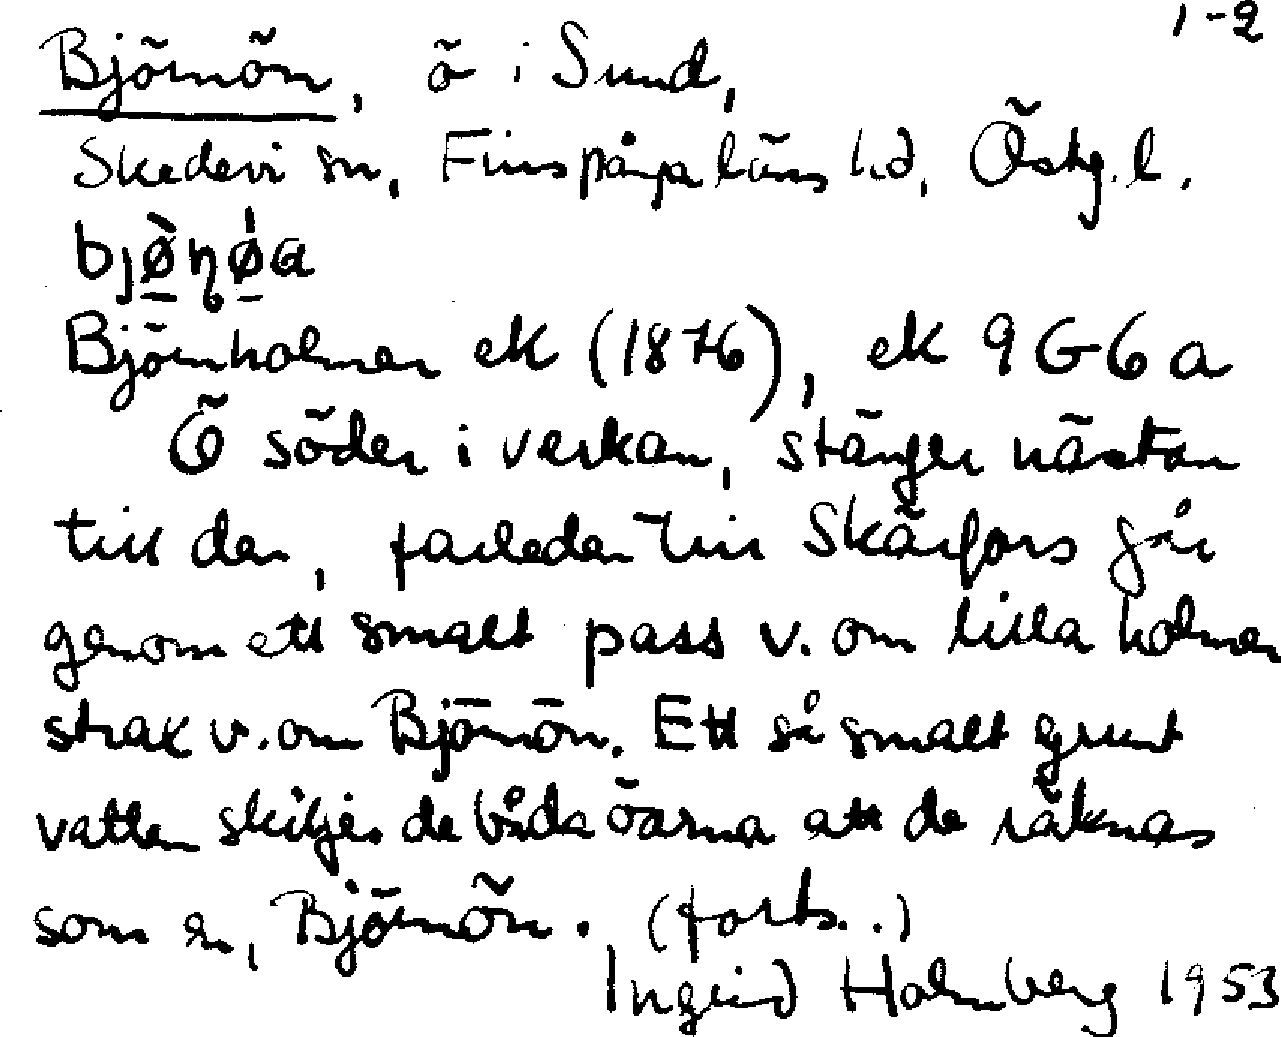 1-2
Björnön, ö i Sund,
Skedevi sn, Finspånga läns hd, Östg. l.
bjø̀ɳǿa
Björnholmen ek (1876), ek 9G6a
Ö söder i verkan, stänger nästan
till den, farleden till Skärfors går
genom ett smalt pass v. om lilla holmen
strax v. om Björnön. Ett så smalt grunt
vatten skiljer de båda öarna att de räknas
som en, Björnön. (forts.)
Ingrid Holmberg 1953